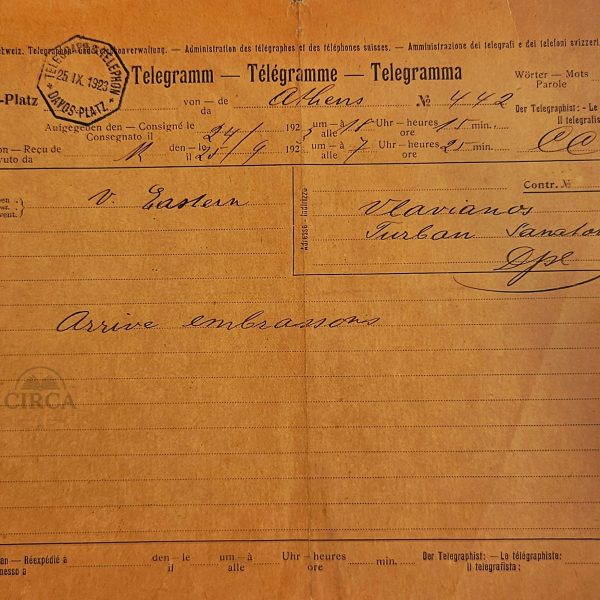 schweiz. Telegraphen- und Telephonverwaltung. — Administration des télégraphes et des téléphones suisses. — Amministrazione dei telegrafi e dei telefoni svizzeri
TELEGRAPH & TELEPHON
25.IX.1923
DAVOS-PLATZ
Telegramm — Télégramme — Telegramma
Wörter — Mots
Parole
-Platz von — de da Athens № 442
Der Telegraphist: — Le
Il telegrafis
Aufgegeben den — Consigné le
Consegnato il 24/ 192 3 um — à alle 18 Uhr — heures ore 15 min.
on — Reçu de
vuto da den — le il 25/9 192 um — à alle 7 Uhr — heures ore 25 min.
V. Eastern
Contr. №
Adresse — Indirizzo
Vlavianos
Turban Sanator
Dpz
Arrive embrassons
CIRCA
an — Réexpédié à den — le il um — à alle Uhr — heures ore min.
Der Telegraphist: — Le télégraphiste:
Il telegrafista: